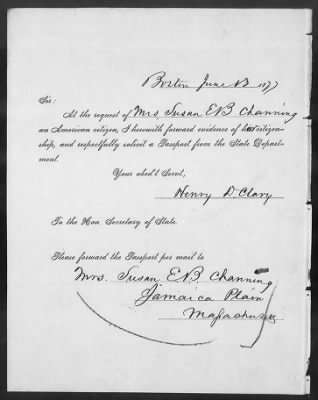 Boston June 13 1877
Sir:
At the request of Mrs. Susan E B Channing
an American citizen, I herewith forward evidence of her citizen-
ship, and respectfully solicit a Passport from the State Depart-
ment.
Your obed't Servt,
Henry D. Clary
To the Hon. Secretary of State.
Please forward the Passport per mail to
Mrs. Susan E. B. Channing
Jamaica Plain
Massachusetts